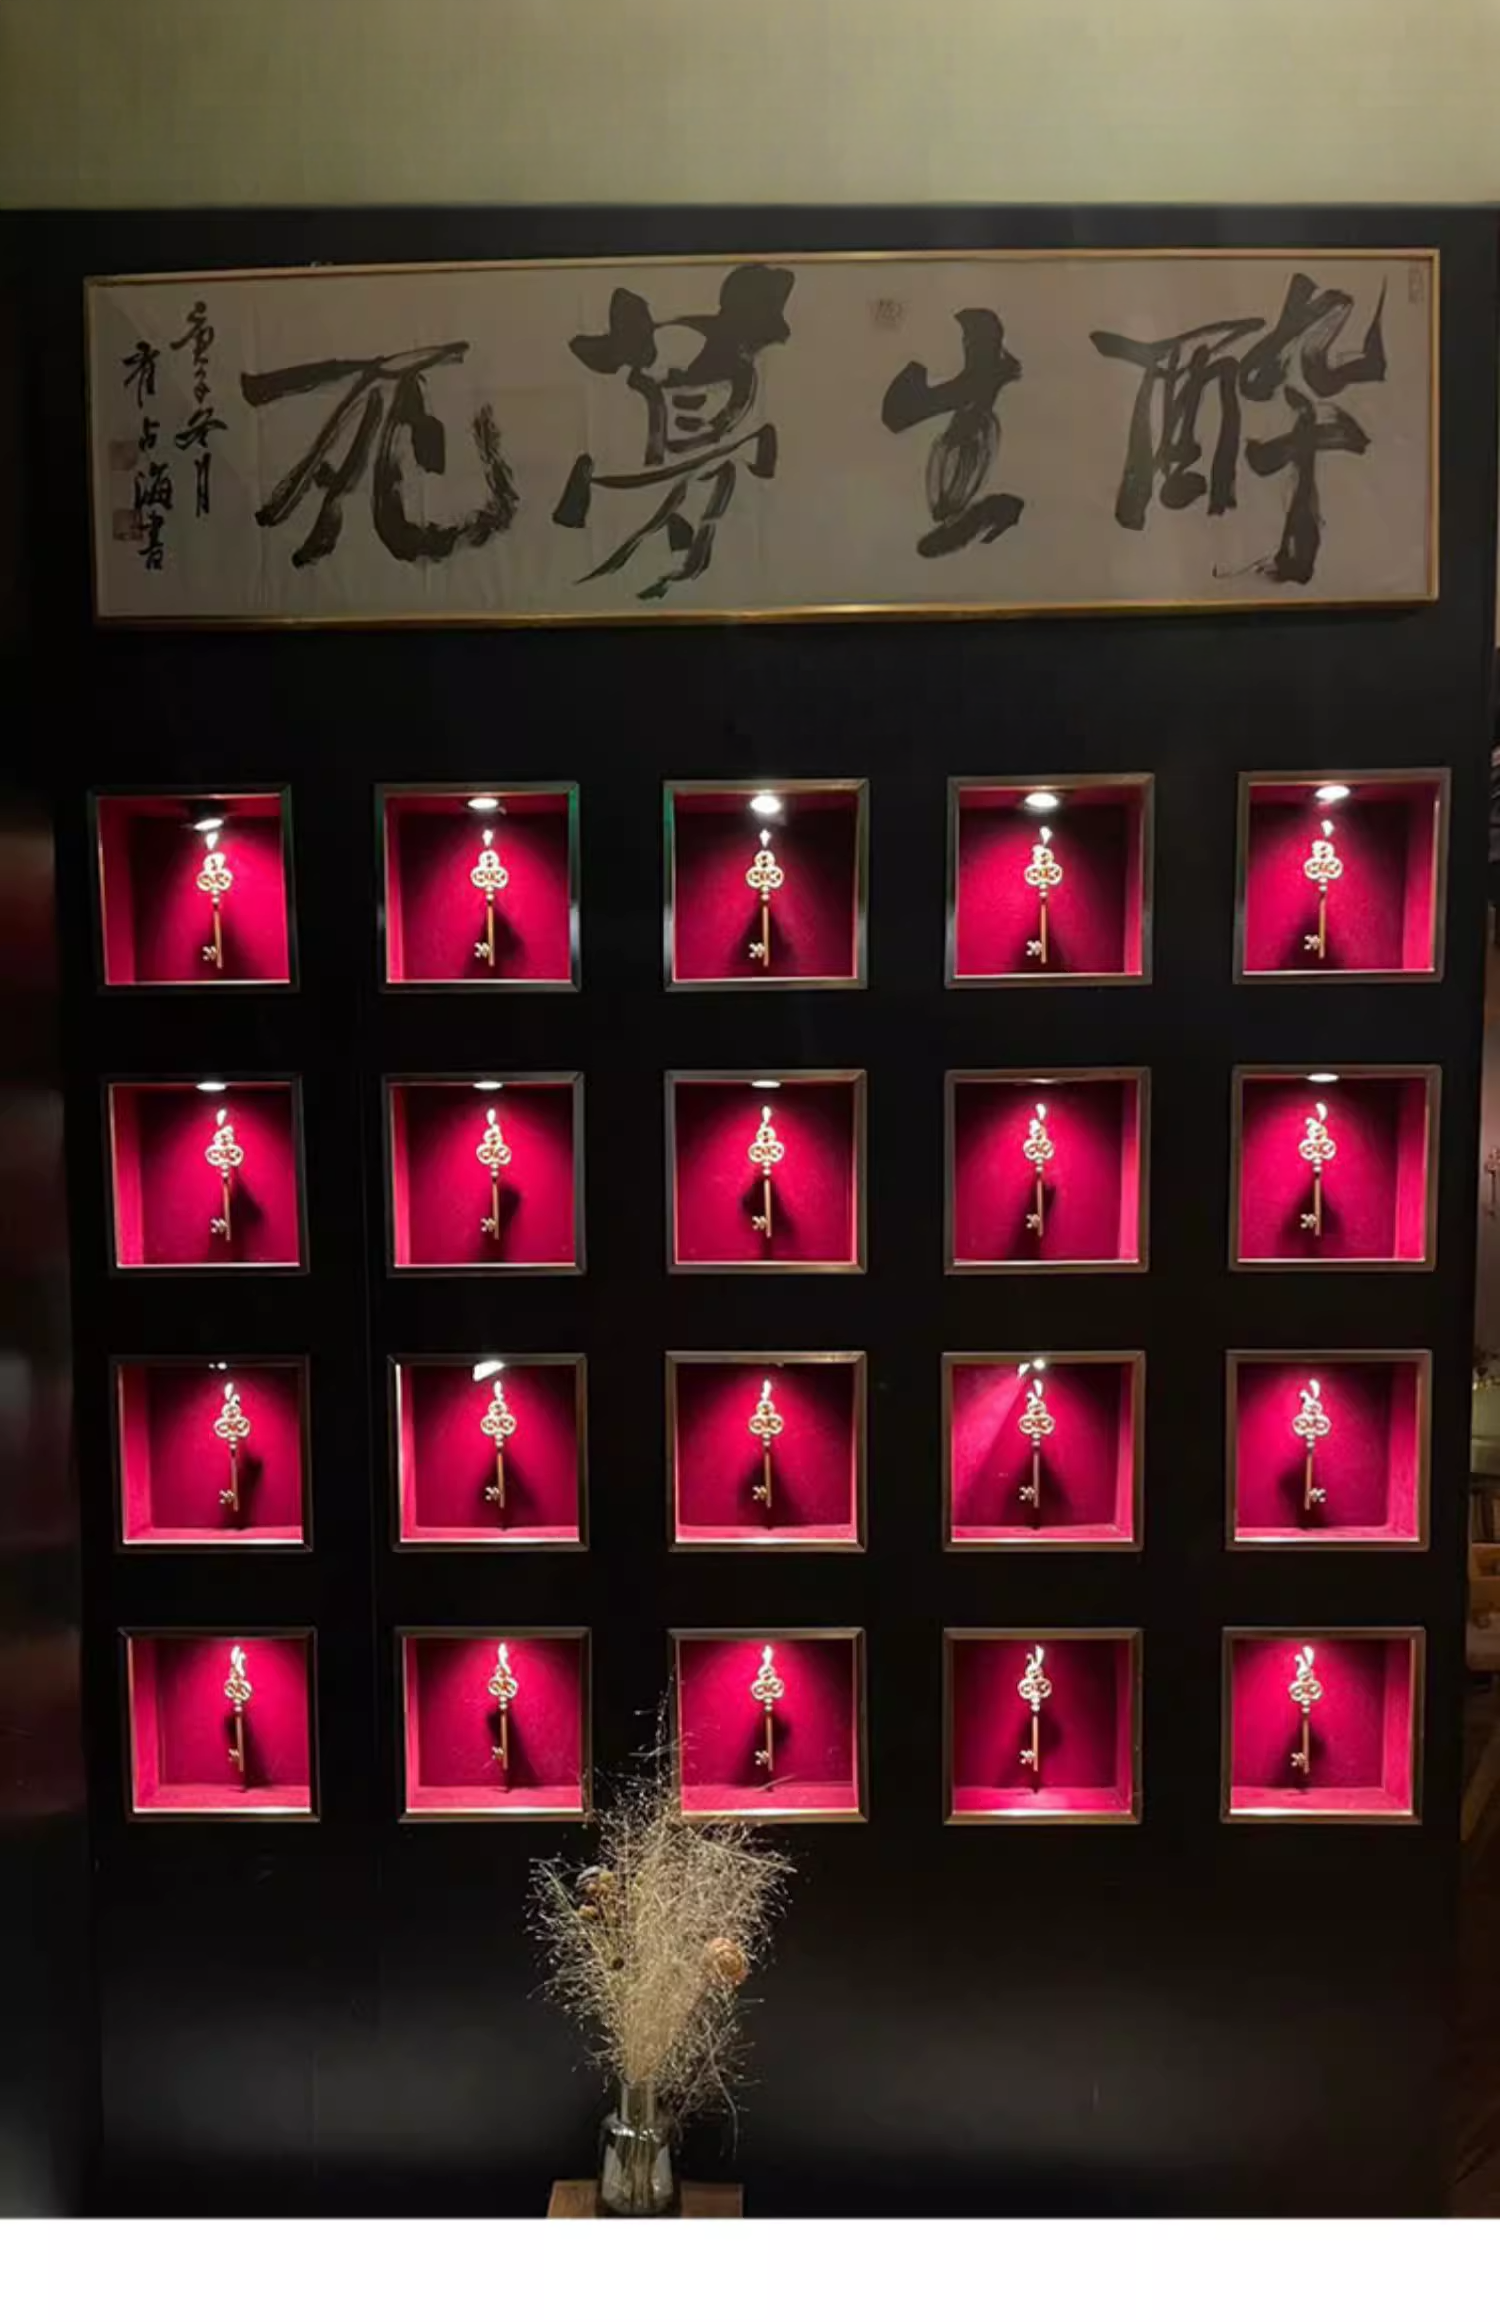 醉生夢死
庚子冬月
崔占海書